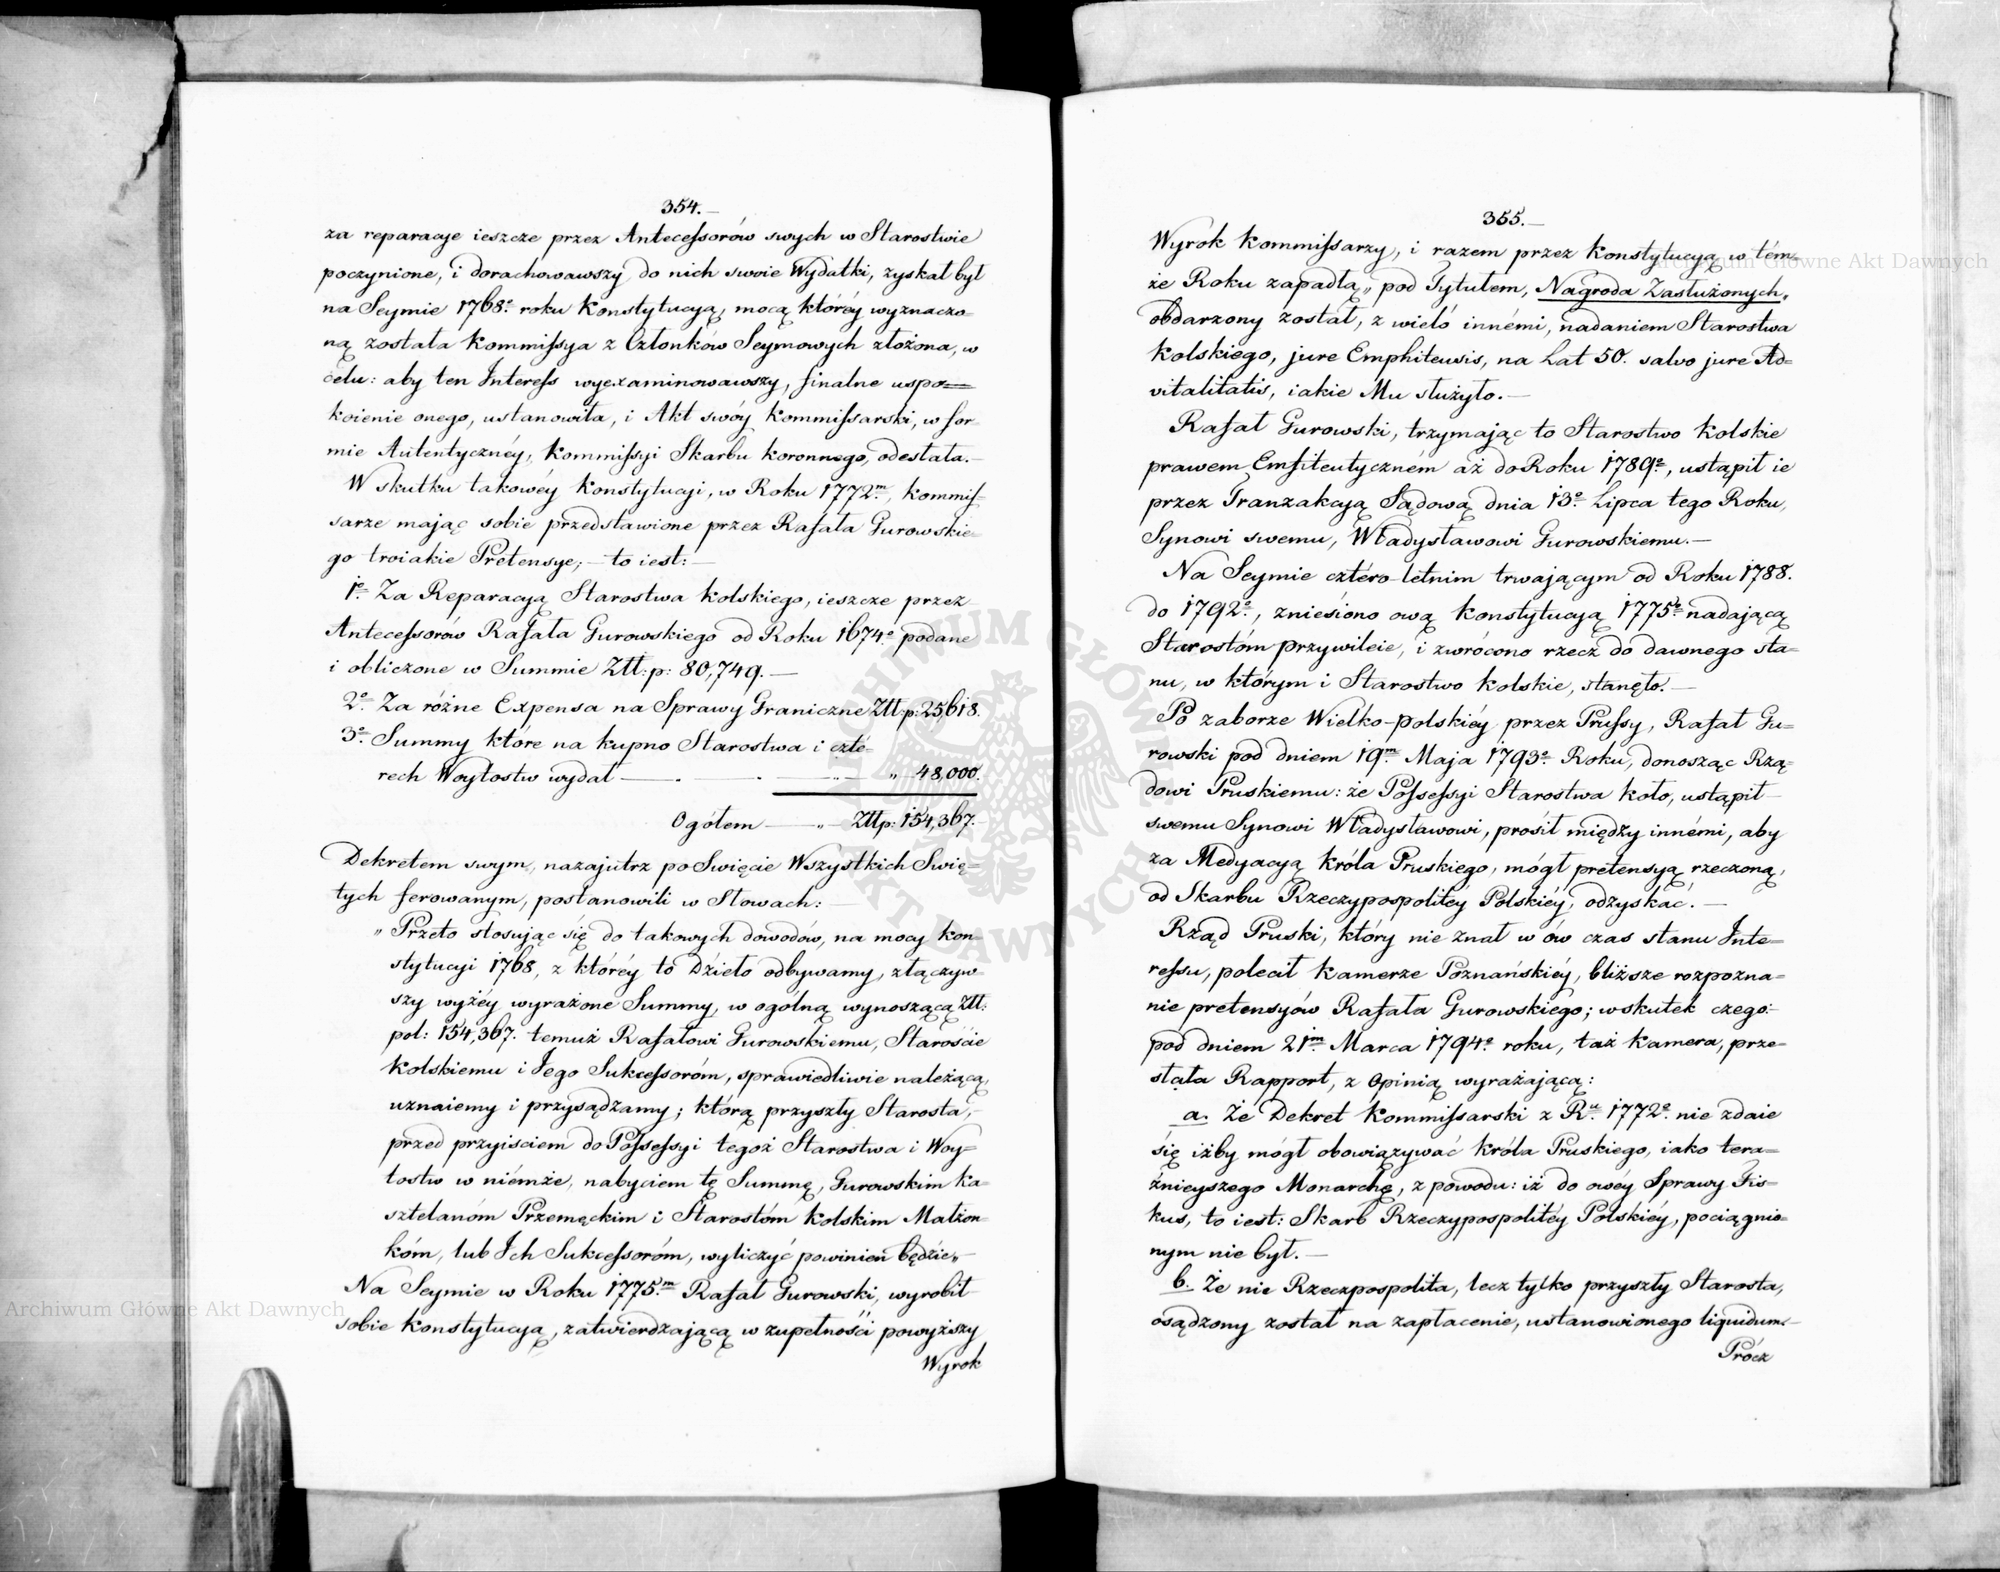 354.
za reparacye ieszcze przez Antecessorów swych w Starostwie
poczynione, i dorachowawszy do nich swoie Wydatki, zyskał był
na Seymie 1768º roku Konstytucyą, mocą któréy wyznaczo=
ną została Kommissya z Członków Seymowych złożona, w
celu: aby ten Interess wyexaminowawszy, finalne uspo=
koienie onego, ustanowiła, i Akt swóy Kommissarski, w for=
mie Autentycznéy, Kommissyi Skarbu koronnego, odesłała.—
W skutku takowéy Konstytucyi, w Roku 1772m, Kommis=
sarze mając sobie przedstawione przez Rafała Gurowskie=
go troiakie Pretensye;— to iest:—
1º Za Reparacyą Starostwa Kolskiego, ieszcze przez
Antecessorów Rafała Gurowskiego od Roku 1674º podane
i obliczone w Summie Złł: p: 80,749.—
2º Za różne Expensa na Sprawy Graniczne Złł: p: 25,618.
3º Summy które na kupno Starostwa i czte=
rech Woytostw wydał — . . . „ 48,000.
Ogółem — „ — Złłp: 154,367.
Dekretem swym, nazajutrz po Swięcie Wszystkich Swię=
tych ferowanym, postanowili w Słowach: —
„ Przeto stosując się do takowych dowodów, na mocy Kon=
stytucyi 1768, z któréy to Dzieło odbywamy, złączyw=
szy wyżéy wyrażone Summy, w ogólną wynoszącą Złł:
pol: 154,367. temuż Rafałowi Gurowskiemu, Staroście
Kolskiemu i Jego Sukcessoróm, sprawiedliwie należącą,
uznaiemy i przysądzamy; którą przyszły Starosta,
przed przyisciem do Possessyi tegoż Starostwa i Woy=
tostw w niémże, nabyciem tę Summę, Gurowskim Ka=
sztelanóm Przemęckim i Starostóm Kolskim Małżon=
kóm, lub Ich Sukcessoróm, wyliczyć powinien będzie„
Na Seymie w Roku 1775m Rafał Gurowski, wyrobił
sobie Konstytucyą, zatwierdzającą w zupełności powyższy
Wyrok
355.
Wyrok Kommissarzy, i razem przez Konstytucyą w tém=
że Roku zapadłą, pod Tytułem, Nagroda Zasłużonych„
obdarzony został, z wielo innémi, nadaniem Starostwa
Kolskiego, jure Emphiteusis, na Lat 50. salvo jure Ad=
vitalitatis, iakie Mu służyło.—
Rafał Gurowski, trzymając to Starostwo Kolskie
prawem Emfiteutyczném aż do Roku 1789º, ustąpił ie
przez Tranzakcyą Sądową dnia 13º Lipca tego Roku,
Synowi swemu, Władysławowi Gurowskiemu.—
Na Seymie cztéro-letnim trwającym od Roku 1788.
do 1792º, zniesiono ową Konstytucyą 1775º nadającą
Starostóm przywileie, i zwrócono rzecz do dawnego sta=
nu, w którym i Starostwo Kolskie, stanęło.—
Po zaborze Wielko-polskiéy przez Prussy, Rafał Gu=
rowski pod dniem 19m Maja 1793º Roku, donosząc Rzą=
dowi Pruskiemu: że Possessyi Starostwa Koło, ustąpił
swemu Synowi Władysławowi, prosił między innémi, aby
za Medyacyą Króla Pruskiego, mógł pretensyą rzeczoną,
od Skarbu Rzeczypospolitéy Polskiéy, odzyskać.—
Rząd Pruski, który nie znał w ów czas stanu Inte=
ressu, polecił Kamerze Poznańskiéy, bliższe rozpozna=
nie pretensyów Rafała Gurowskiego; w skutek czego:
pod dniem 21m Marca 1794º roku, taż Kamera, prze=
słała Rapport, z Opinią wyrażającą:
a. Że Dekret Kommissarski z Ru 1772º nie zdaie
się iżby mógł obowiązywać Króla Pruskiego, iako tera=
źnieyszego Monarchę, z powodu: iż do owéy Sprawy Fis=
kus, to iest: Skarb Rzeczypospolitéy Polskiéy, pociągnio=
nym nie był.—
b. Że nie Rzeczpospolita, lecz tylko przyszły Starosta,
osądzony został na zapłacenie, ustanowionego liquidum.—
Prócz
Archiwum Główne Akt Dawnych
Archiwum Główne Akt Dawnych
ARCHIWUM GŁÓWNE AKT DAWNYCH